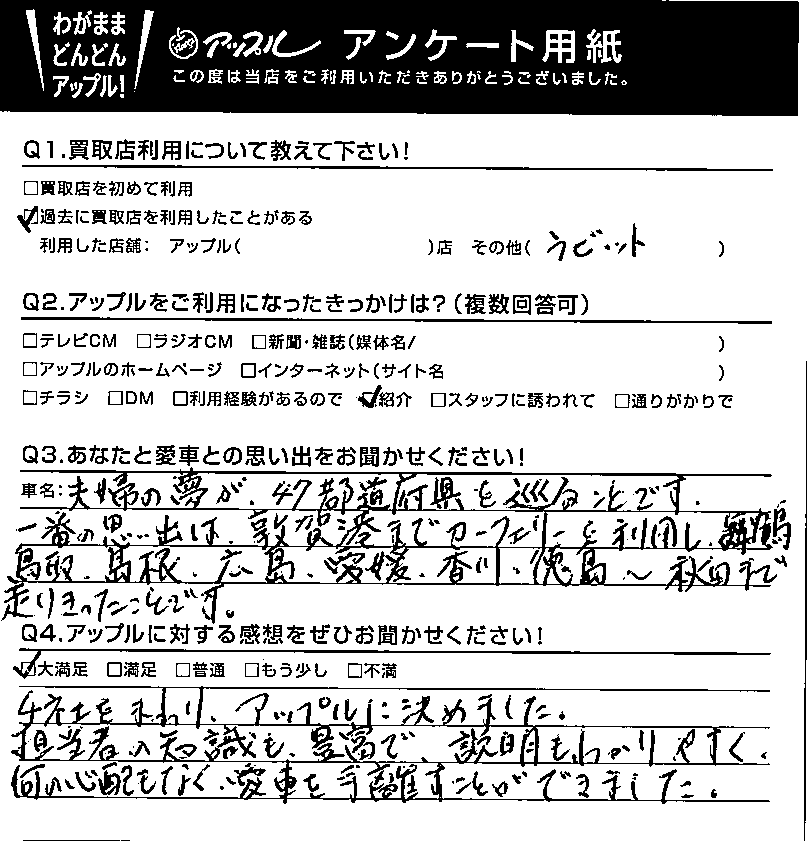 わがまま
どんどん
アップル!
アップル アンケート用紙
この度は当店をご利用いただきありがとうございました。
Q1.買取店利用について教えて下さい!
□買取店を初めて利用
☑過去に買取店を利用したことがある
利用した店舗: アップル( )店 その他( ラビット )
Q2.アップルをご利用になったきっかけは?(複数回答可)
□テレビCM □ラジオCM □新聞・雑誌(媒体名/ )
□アップルのホームページ □インターネット(サイト名 )
□チラシ □DM □利用経験があるので ☑紹介 □スタッフに誘われて □通りがかりで
Q3.あなたと愛車との思い出をお聞かせください!
車名:夫婦の夢が、47都道府県を巡ることです。
一番の思い出は、敦賀港までカーフェリーを利用し、舞鶴
鳥取、島根、広島、愛媛、香川、徳島〜秋田まで
走りきったことです。
Q4.アップルに対する感想をぜひお聞かせください!
☑大満足 □満足 □普通 □もう少し □不満
4社をまわり、アップルに決めました。
担当者の知識も、豊富で、説明もわかりやすく、
何の心配もなく、愛車を手離すことができました。